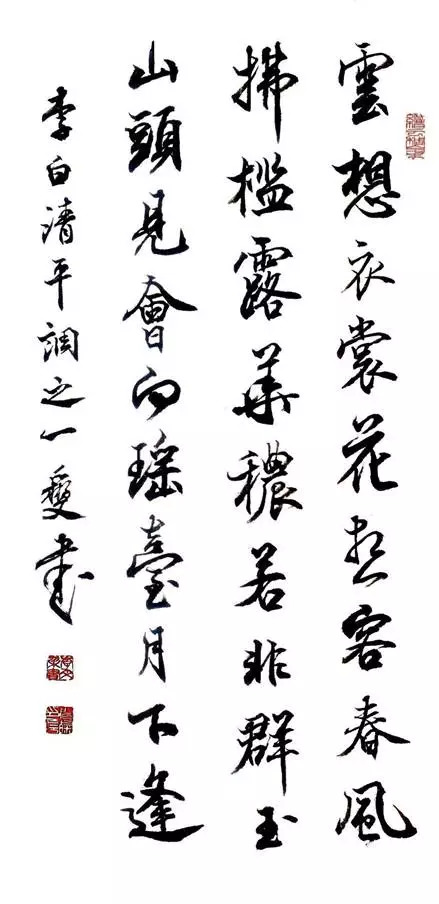 雲想衣裳花想容春風
拂檻露華穠若非群玉
山頭見會向瑤臺月下逢
李白清平調之一書